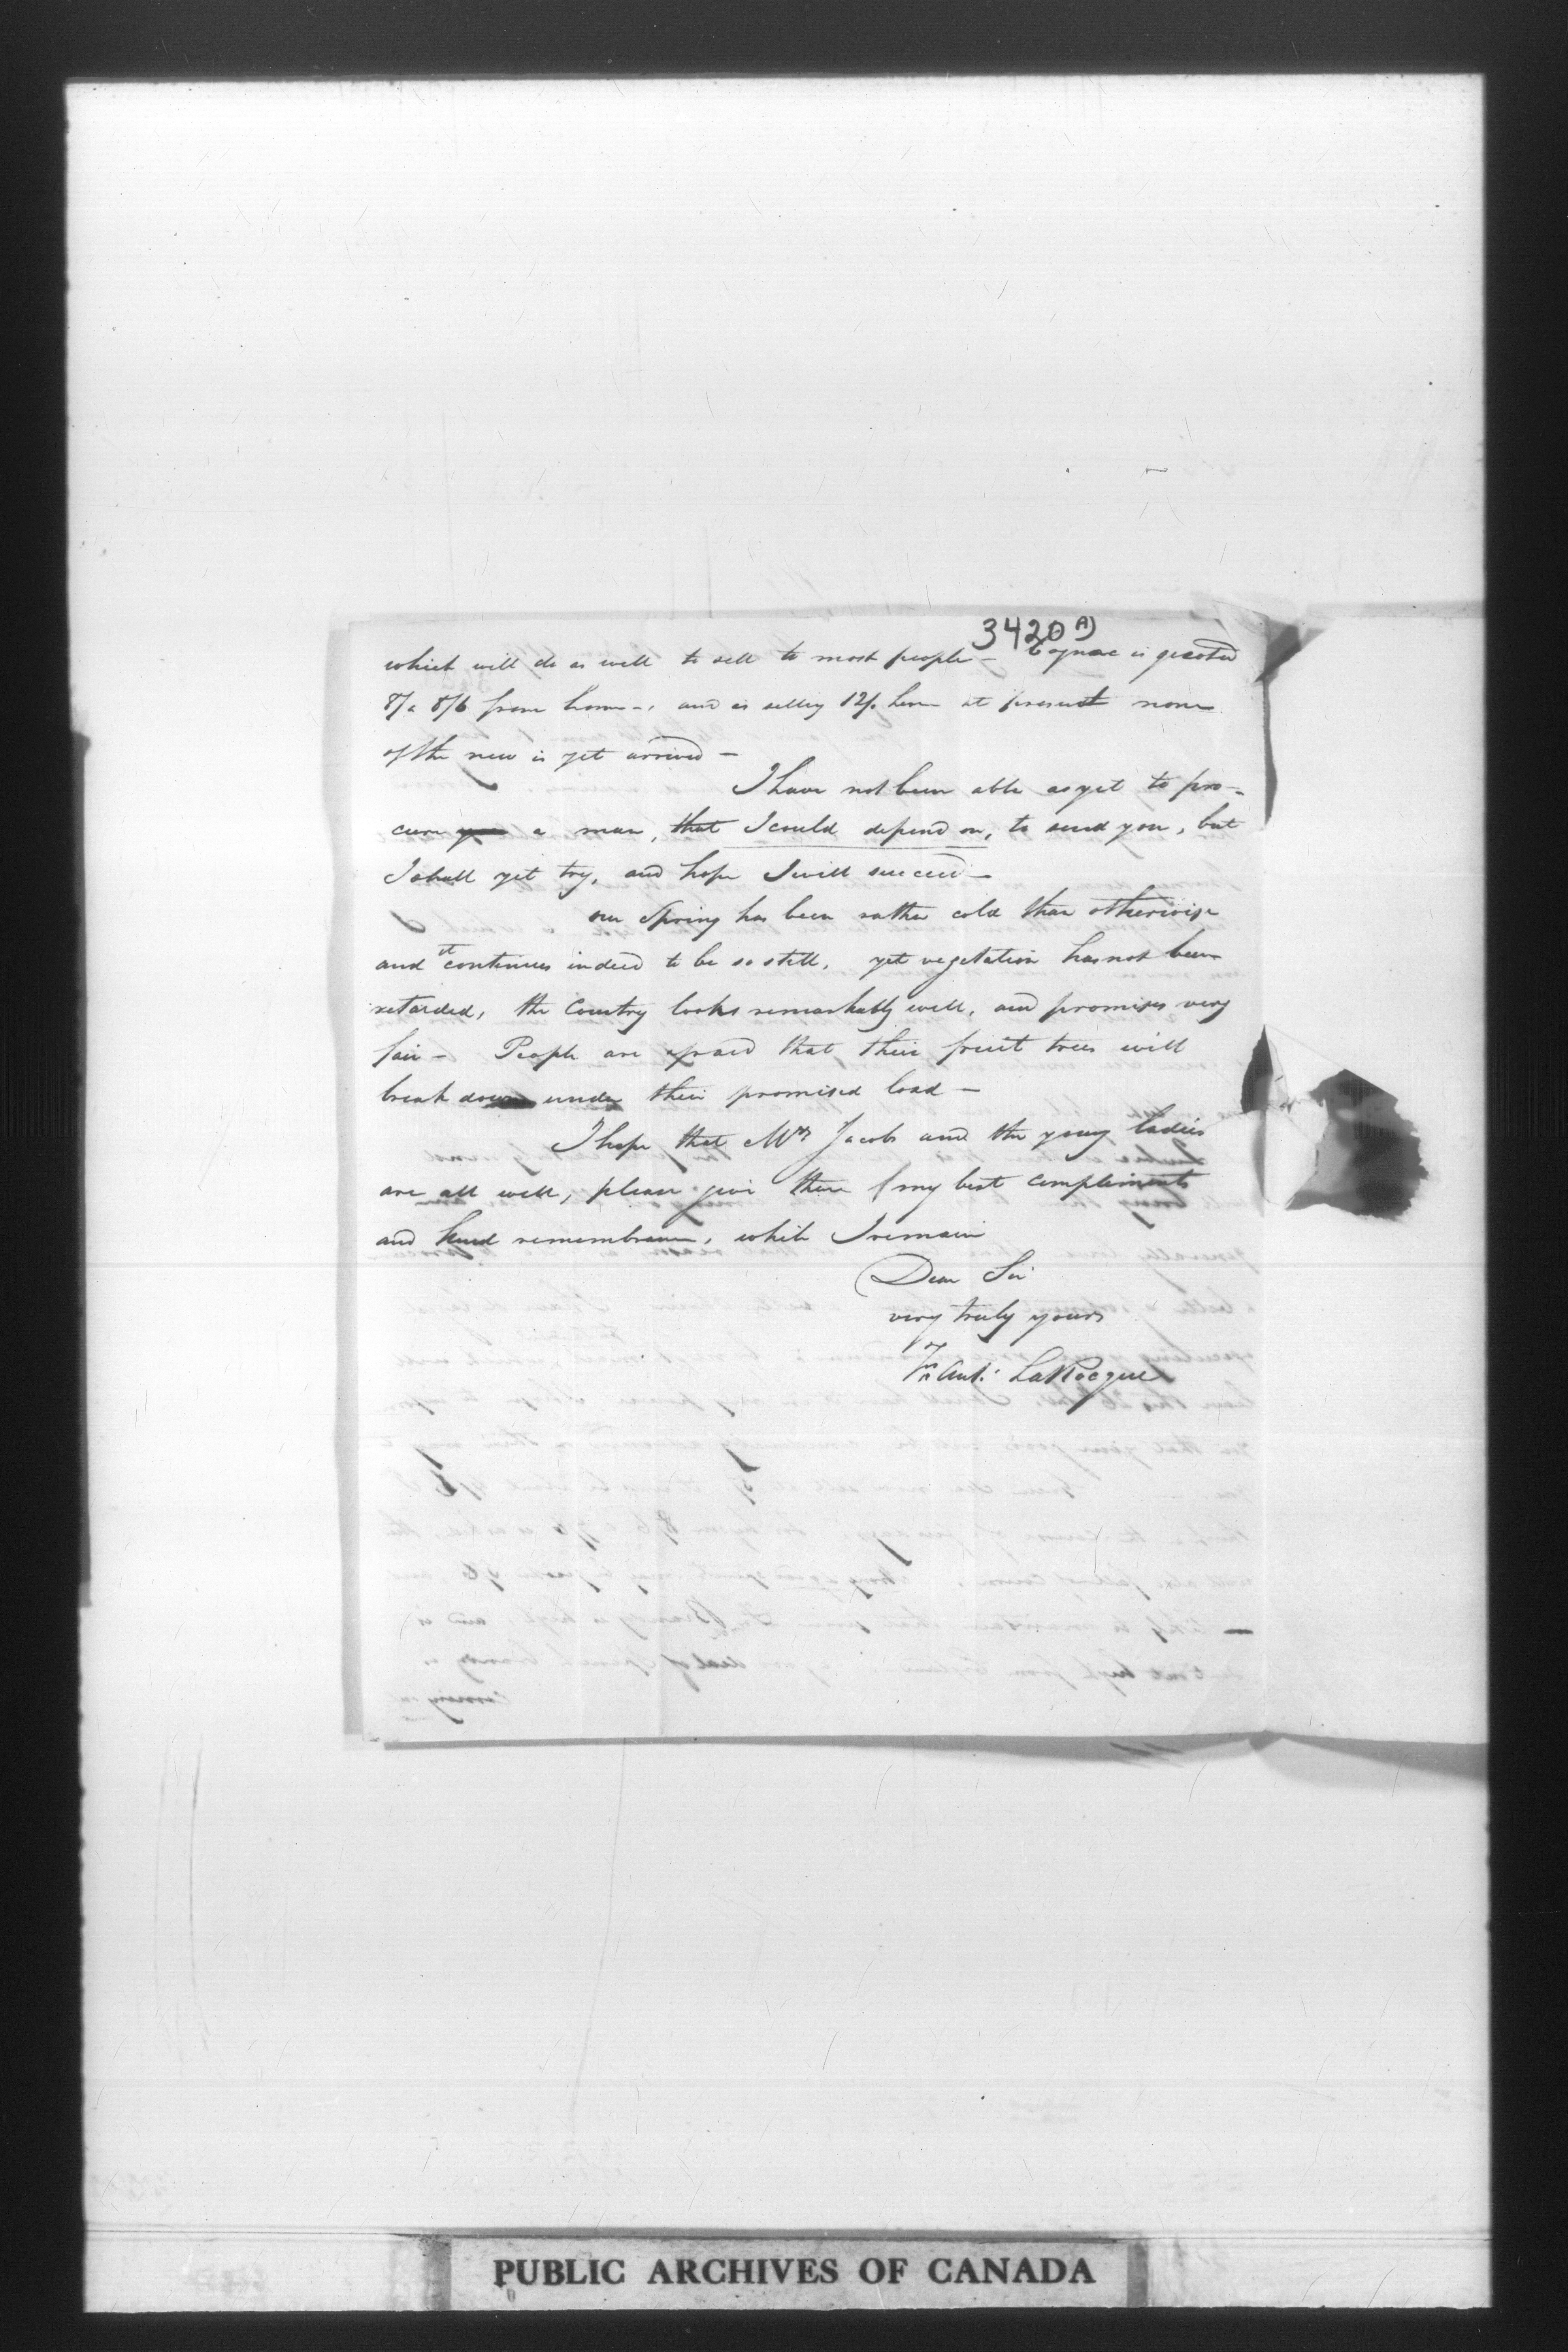 3420 A)
which will do as well to sell to most people - Cognac is quoted
8/ a 8/6 from home -, and is selling 12/. here at present none
of the new is yet arrived -
I have not been able as yet to pro-
cure a man, that I could depend on, to send you, but
I shall yet try, and hope I will succeed -
our Spring has been rather cold than otherwise
and it continues indeed to be so still, yet vegetation has not been
retarded, the Country looks remarkably well, and promises very
fair - People are afraid that their fruit trees will
break down under their promised load -
I hope that Mrs Jacobs and the young ladies
are all well, please give them my best compliments
and kind remembrance, while I remain
Dear Sir
very truly yours
Frs Ant: LaRocque
PUBLIC ARCHIVES OF CANADA